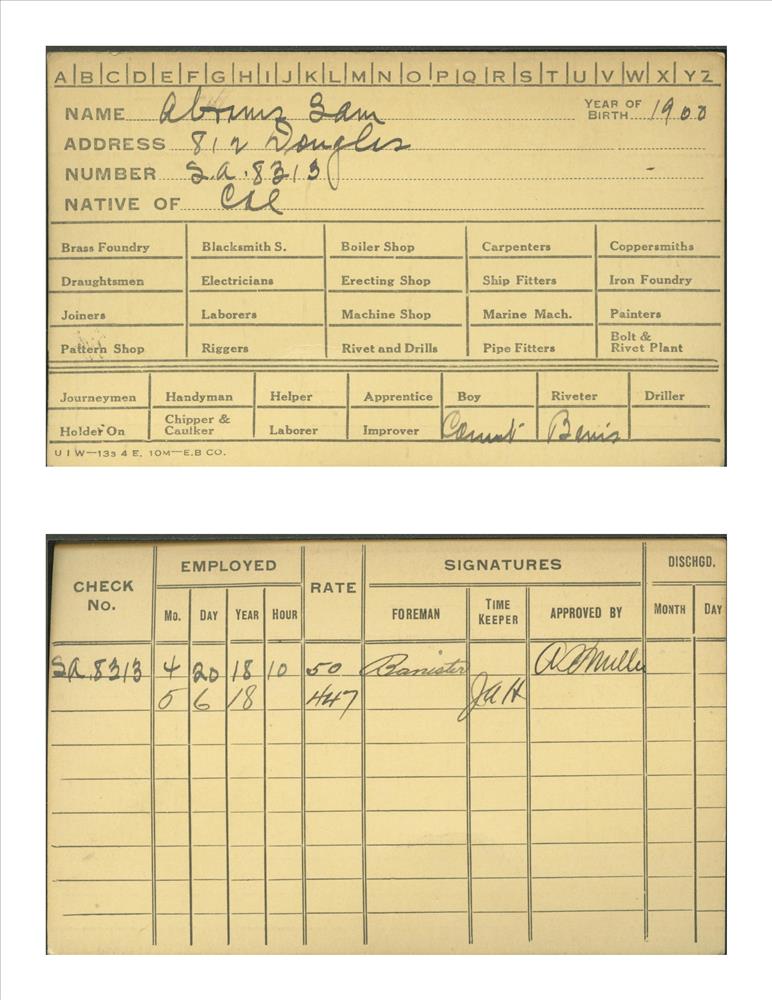 A B C D E F G H I J K L M N O P Q R S T U V W X Y Z
NAME Abrams Sam YEAR OF BIRTH 1900
ADDRESS 812 Douglas
NUMBER S.A. 8313
NATIVE OF Cal
Brass Foundry Blacksmith S. Boiler Shop Carpenters Coppersmiths
Draughtsmen Electricians Erecting Shop Ship Fitters Iron Foundry
Joiners Laborers Machine Shop Marine Mach. Painters
Pattern Shop Riggers Rivet and Drills Pipe Fitters Bolt & Rivet Plant
Journeymen Handyman Helper Apprentice Boy Riveter Driller
Holder On Chipper & Caulker Laborer Improver
U I W—133 4 E. 10M—E.B CO.
CHECK No. EMPLOYED RATE SIGNATURES DISCHGD.
Mo. DAY YEAR HOUR FOREMAN TIME KEEPER APPROVED BY MONTH DAY
SA.8313 4 20 18 10 50 Banister
5 6 18 447 JAH